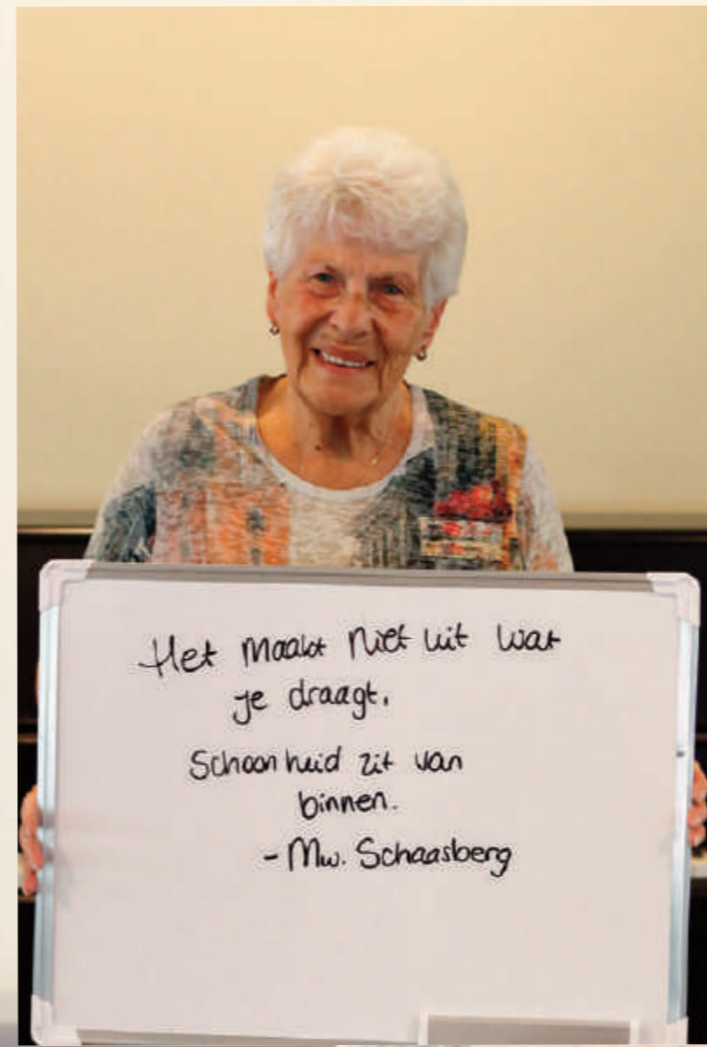 Het maakt niet uit wat
je draagt.
Schoonheid zit van
binnen.
- Mw. Schaasberg